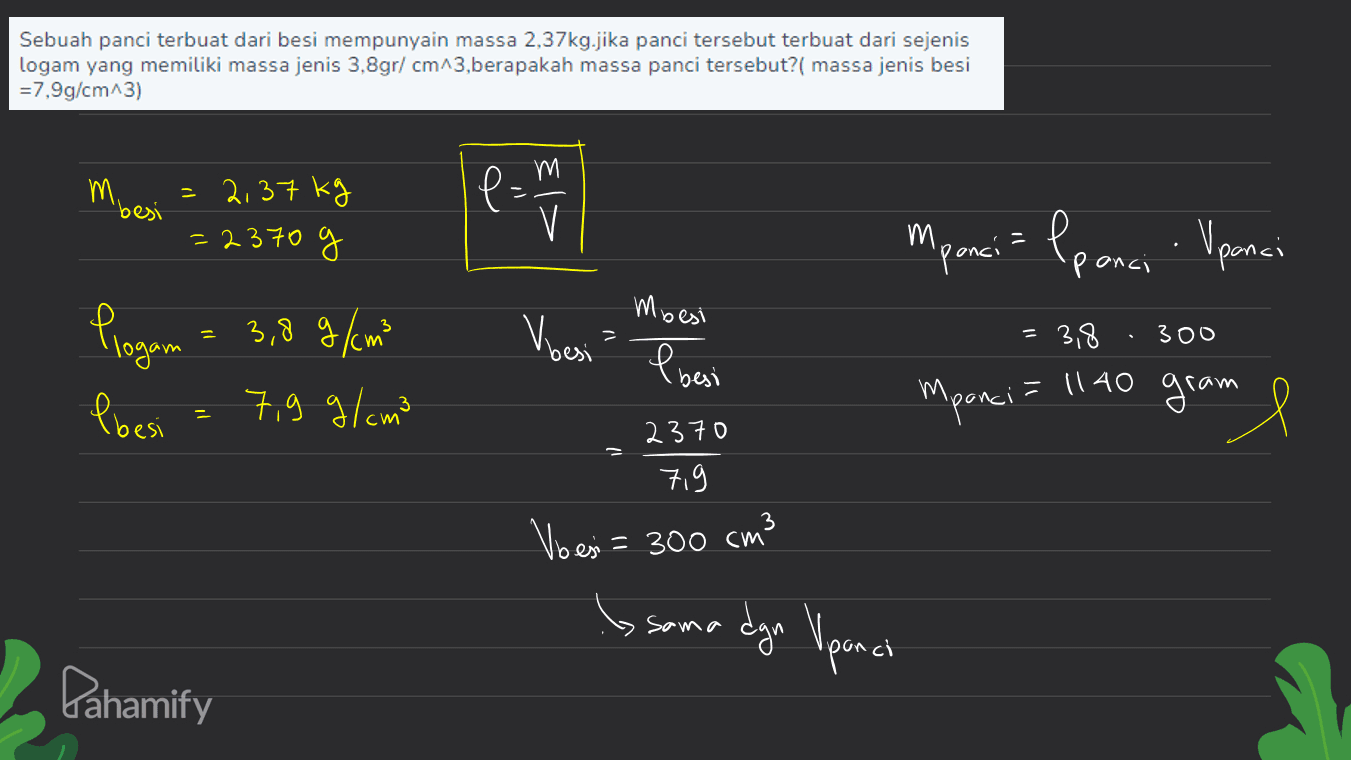 Sebuah panci terbuat dari besi mempunyain massa 2,37kg.jika panci tersebut terbuat dari sejenis
logam yang memiliki massa jenis 3,8gr/ cm^3,berapakah massa panci tersebut?( massa jenis besi
=7,9g/cm^3)
m besi = 2,37 kg
= 2370 g
ρ logam = 3,8 g/cm³
ρ besi = 7,9 g/cm³
ρ = m
V
V besi = m besi
ρ besi
= 2370
7,9
V besi = 300 cm³
↳ sama dgn V panci
m panci = ρ panci . V panci
= 3,8 . 300
m panci = 1140 gram
Pahamify